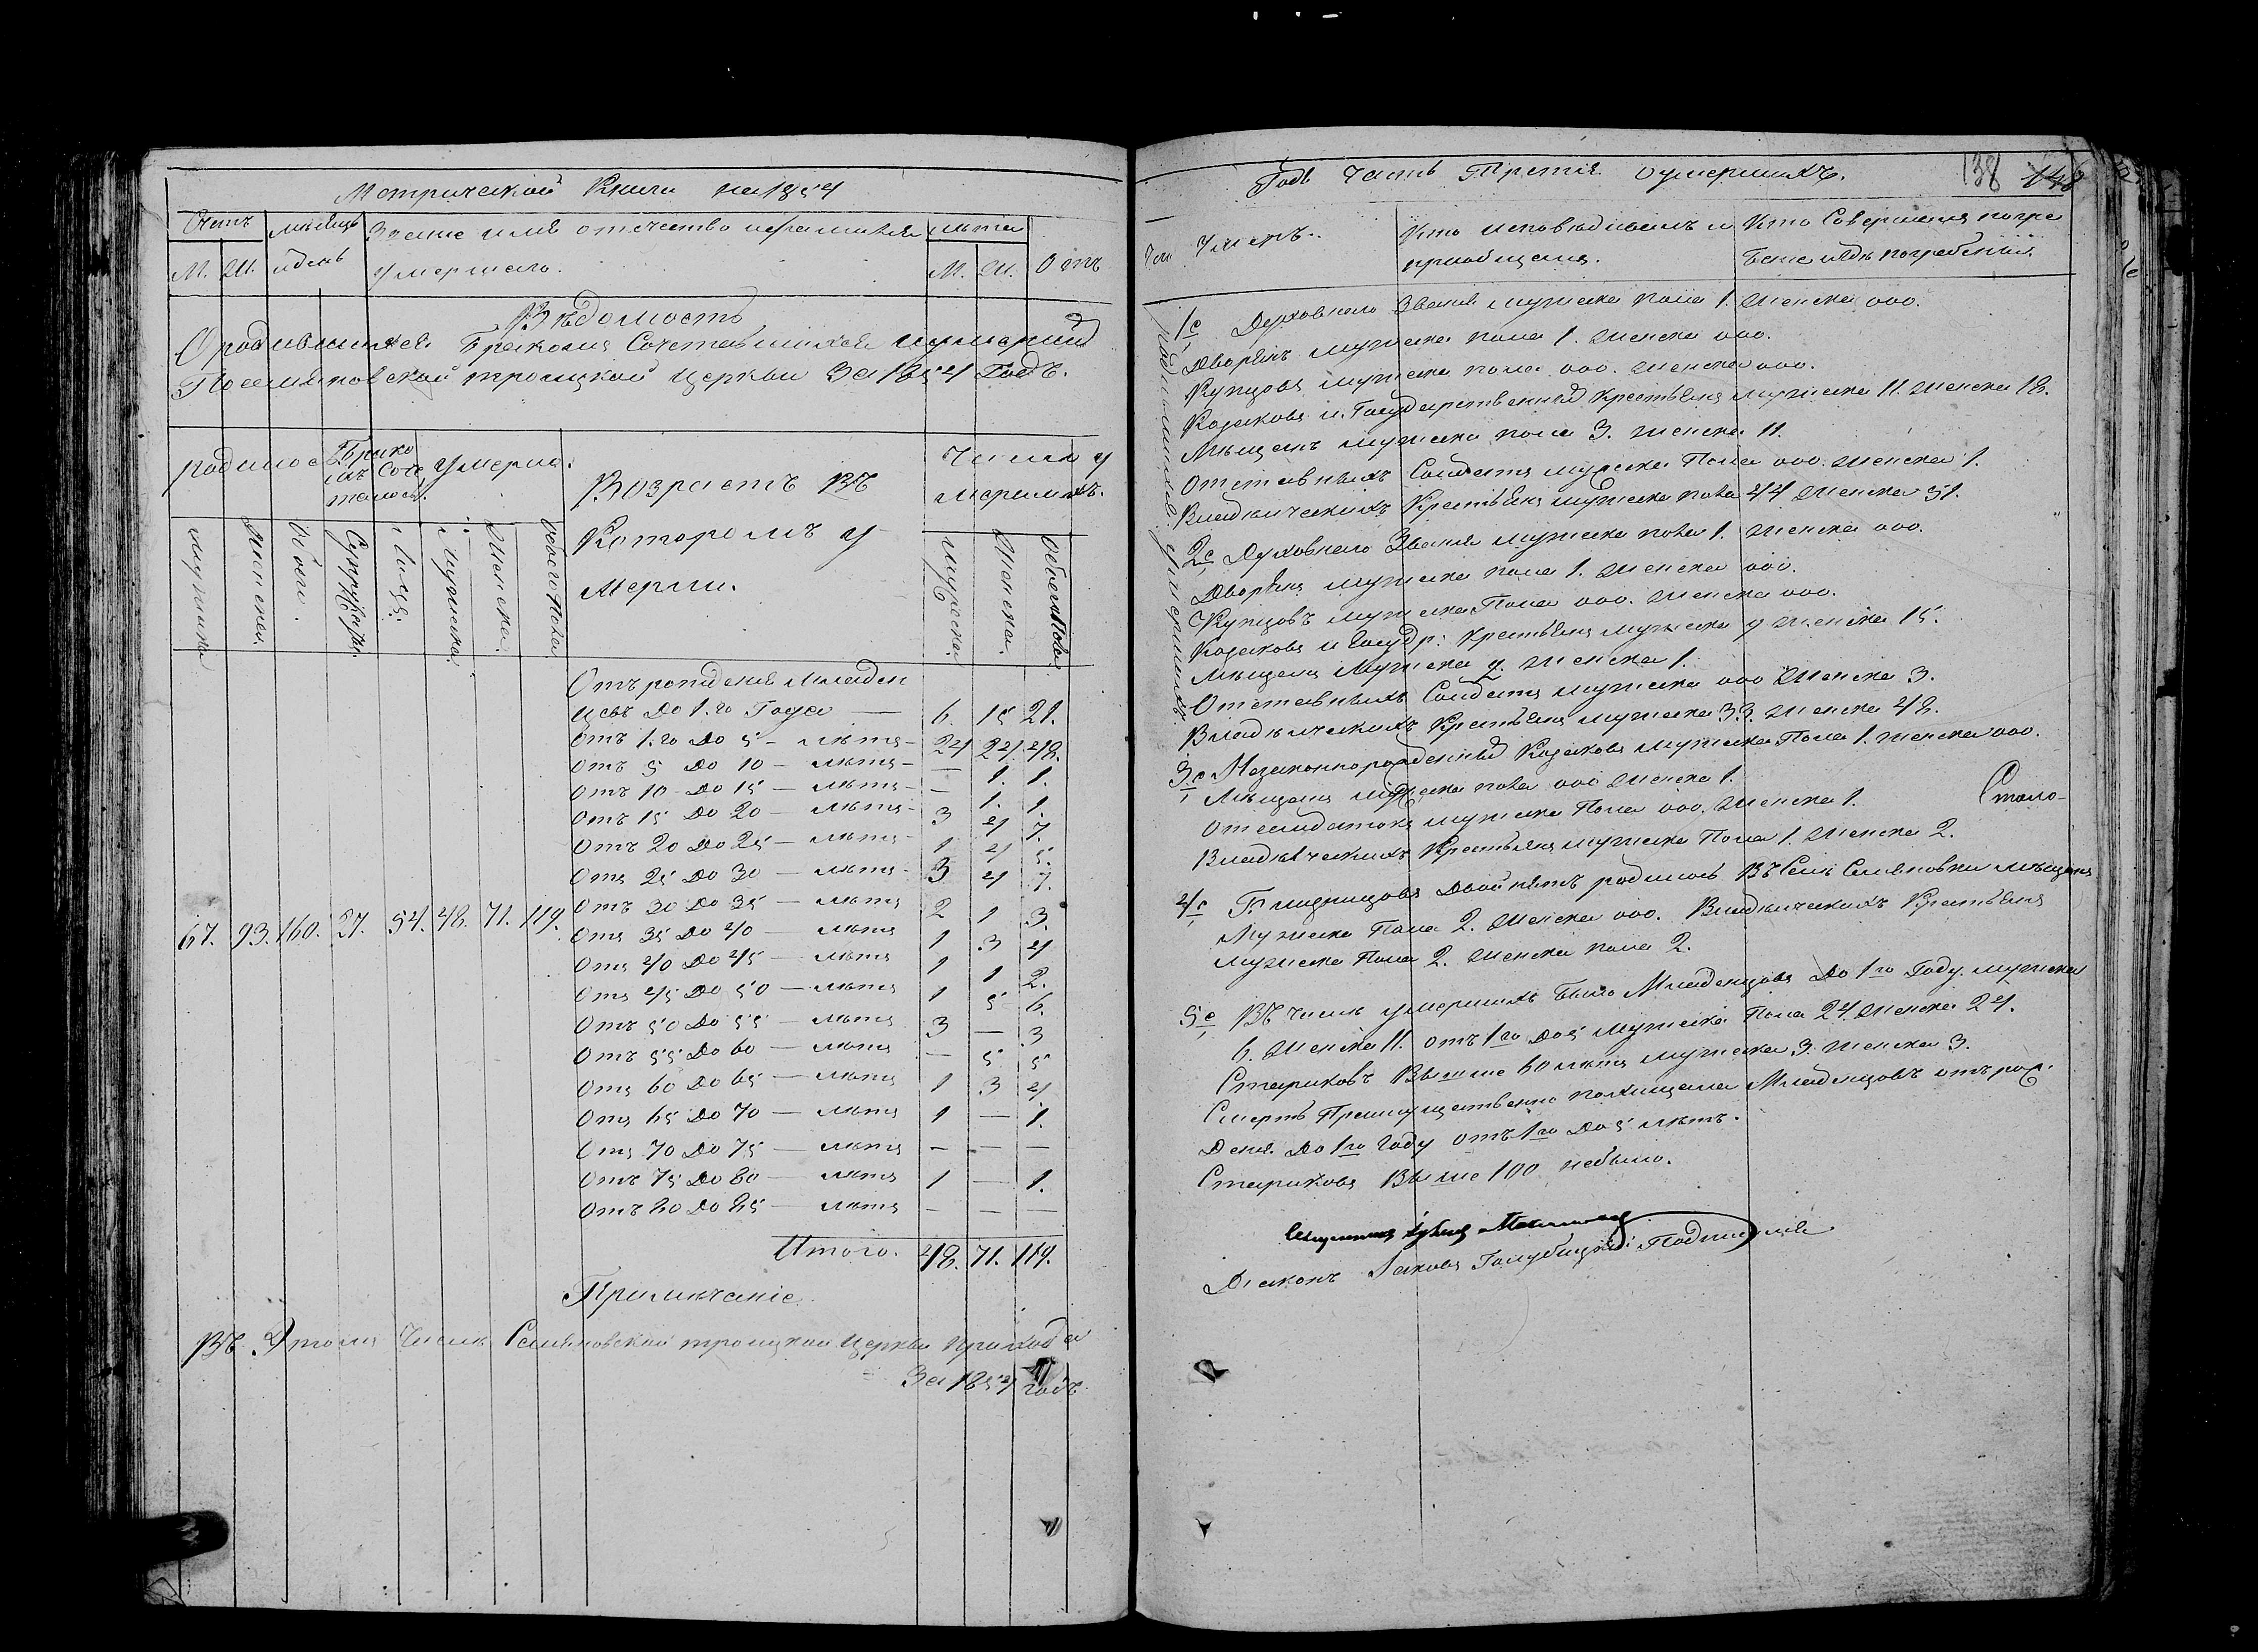 Метрической Книги на 1854
Счетъ
мѣсяцъ
Звание имя отечество ифамилия
лѣта
М. Ж.
идень
умершаго.
М. Ж.
Отъ
Вѣдомость
Ородившихся Бракомъ Сочетавшихся иумершихъ
Посемяновской троицкой Церкви За 1854 Годъ.
родилос
Брако
мъ Соче
талось.
умерло.
Возрастъ ВЪ
Которомъ у
мерли.
Число у
мершихъ.
мужска
Женска.
Обоего.
Супружес.
Лицъ.
Мужска.
Женска.
Обоего Пола
Мужска.
Женска.
Обоего Пола.
Отъ рождения младен
цевъ До 1.го Года — 6. 15 21.
Отъ 1.го До 5 — лѣтъ — 24 24. 48.
Отъ 5 До 10 — лѣтъ — — 1. 1.
Отъ 10 До 15 — лѣтъ — — 1. 1.
Отъ 15 До 20 — лѣтъ — 3 4 7.
Отъ 20 До 25 — лѣтъ — 1 4 5.
Отъ 25 До 30 — лѣтъ — 3 4 7.
Отъ 30 До 35 — лѣтъ 2 1 3.
67. 93. 160. 27. 54. 48. 71. 119.
Отъ 35 До 40 — лѣтъ 1 3 4
Отъ 40 До 45 — лѣтъ 1 1 2.
Отъ 45 До 50 — лѣтъ 1 5 6.
Отъ 50 До 55 — лѣтъ 3 — 3
Отъ 55 До 60 — лѣтъ — 5 5
Отъ 60 До 65 — лѣтъ 1 3 4
Отъ 65 До 70 — лѣтъ 1 — 1.
Отъ 70 До 75 — лѣтъ — — —
Отъ 75 До 80 — лѣтъ 1 — 1.
Отъ 80 До 85 — лѣтъ — — —
Итого. 48. 71. 119.
Примѣчаніе
ВЪ Этомъ Числѣ Семяновской троицкой Церкви прихода
За 1854 годъ
Годъ Часть Третія оумершихъ.
138 148
Умеръ.
Кто исповѣдивалъ и
приобщалъ.
Кто Совершалъ погре
бение игдѣ погребены.
родившихся умершихъ.
1е Духовнаго Звания мужска пола 1. Женска 000.
Дворянъ мужска пола 1. Женска 000.
Купцовъ мужска пола 000. Женска 000.
Козаковъ и Государственныхъ Крестьянъ мужска 11. Женска 18.
Мѣщанъ мужска пола 3. Женска 11.
Отставныхъ Солдатъ мужска Пола 000. Женска 1.
Владѣлческихъ Крестьянъ мужска пола 44 Женска 51.
2е Духовнаго Звания мужска пола 1. Женска 000.
Дворянъ мужска пола 1. Женска 000.
Купцовъ мужска Пола 000. Женска 000.
Козаковъ и Госудр: Крестьянъ мужска 9 Женска 15.
Мѣщанъ Мужска 4. Женска 1.
Отставныхъ Солдатъ мужска 000 Женска 3.
Владѣлческихъ Крестьянъ мужска 33. Женска 48.
3е Незаконнорожденныхъ Козаковъ мужска Пола 1. Женска 000.
Мѣщанъ мужска пола 000 Женска 1.
Отсолдатокъ мужска Пола 000. Женска 1.
Владѣлческихъ Крестьянъ мужска Пола 1. Женска 2.
4е Близнецовъ Двойнятъ родилось ВЪ Селѣ Семяновки мѣщанъ
Мужска Пола 2. Женска 000. Владѣлческихъ Крестьянъ
мужска Пола 2. Женска пола 2.
5е ВЪ числѣ умершихъ было Младенцовъ До 1го Году мужска
6. Женска 11. отъ 1го До 5 мужска Пола 24. Женска 24.
Стариковъ Выше 60 лѣтъ мужска 3. Женска 3.
Смерть Преимущественно похищала Младенцовъ отъ рож.
Деня До 1го году отъ 1го До 5 лѣтъ.
Стариковъ Выше 100 небыло.
Диаконъ Іаковъ Голубицкій Подписался